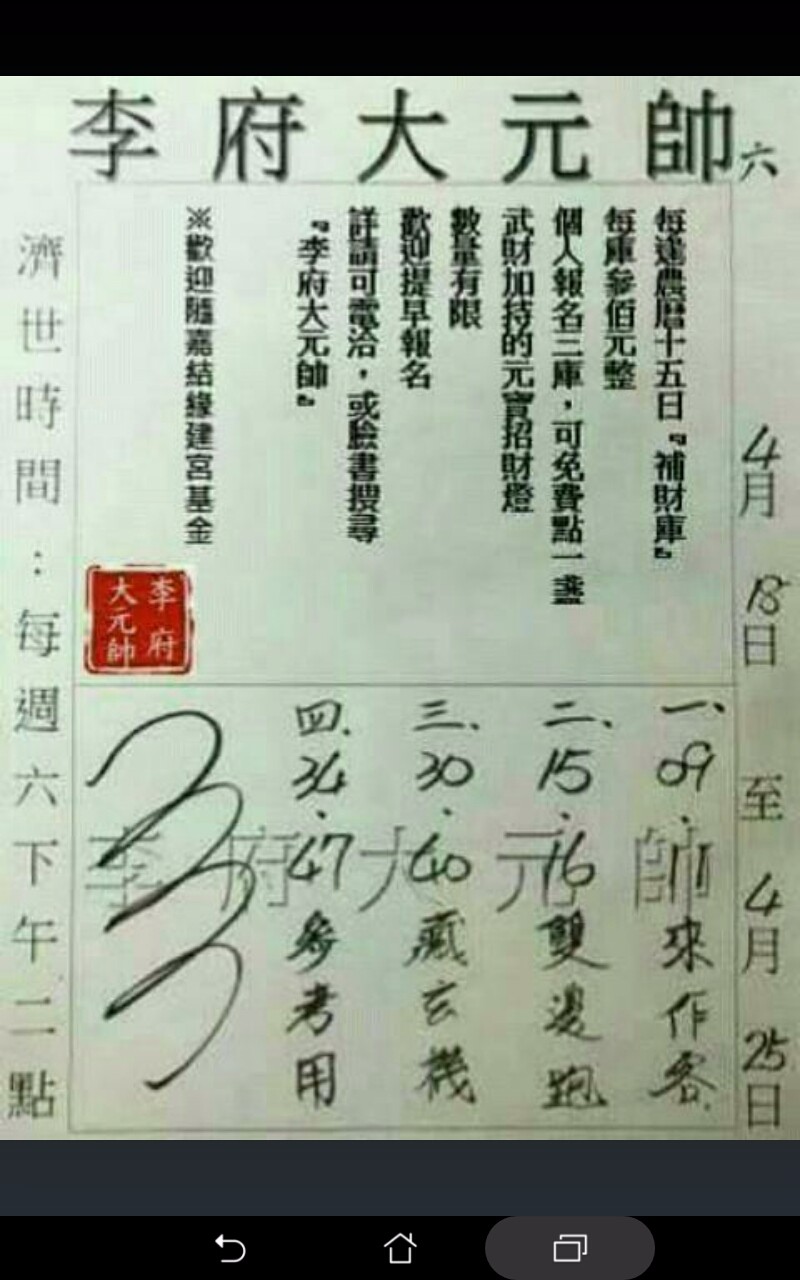 李府大元帥
六
4月18日至4月25日
每逢農曆十五日『補財庫』
每庫參佰元整
個人報名三庫，可免費點一盞
武財加持的元寶招財燈
數量有限
歡迎提早報名
詳請可電洽，或臉書搜尋
『李府大元帥』
※歡迎隨嘉結緣建宮基金
李府
大元帥
一、09.11來作客
二、15.16雙邊跑
三、30.40藏玄機
四、34.47參考用
李府大元帥
濟世時間：每週六下午二點